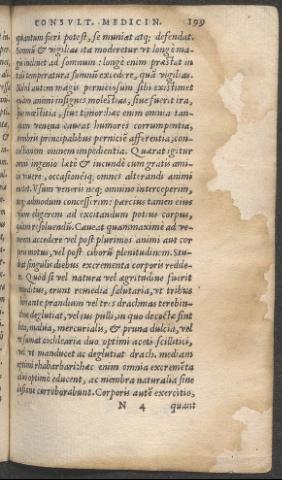 CONSVLT. MEDICIN. 199
quantum fieri potest, se muniat atq; defendat.
somnũ & vigilias ita moderetur vt longè ma-
inclinet ad somnum: longè enim præstat in
temperatura somnũ excedere, quã vigilias.
Nihil autem magis perniciosum sibi existimet
quàm animi insignes molestias, siue fuerit ira,
siue mæstitia, siue timor: hæc enim omnia tan-
quam venena caueat humores corrumpentia,
membris principalibus perniciẽ afferentia,
omnem impedientia. Quærat igitur
ingenio lætè & iucundè cum gratis ami-
viuere, occasionésq; omnes alterandi animi
Vsum veneris neq; omnino interceperim,
neq; admodum concesserim: parcius tamen eius
eligerem ad excitandum potius corpus,
quàm resoluendũ. Caueat quammaximè ad ve-
nerem accedere vel post plurimos animi aut cor
motus, vel post ciborũ plenitudinem. Stu-
singulis diebus excrementa corporis redde-
Quòd si vel natura vel ægritudine fuerit
erunt remedia salutaria, vt tribus
ante prandium vel tres drachmas terebin-
deglutiat, vel ius pulli, in quo decocta sint
malua, mercurialis, & pruna dulcia, vel
sumat cochlearia duo optimi aceti scillitici,
vel vt manducet ac deglutiat drach. mediam
optimi rhabarbari: hæc enim omnia excremẽta
optimè educent, ac membra naturalia sine
corroborabunt. Corporis autẽ exercitio,
N 4 quant